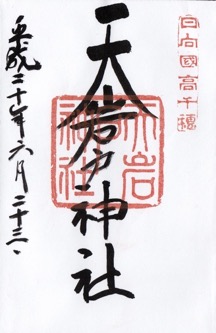 日向國高千穂
天岩戸神社
天岩戸神社
平成二十年六月二十三日